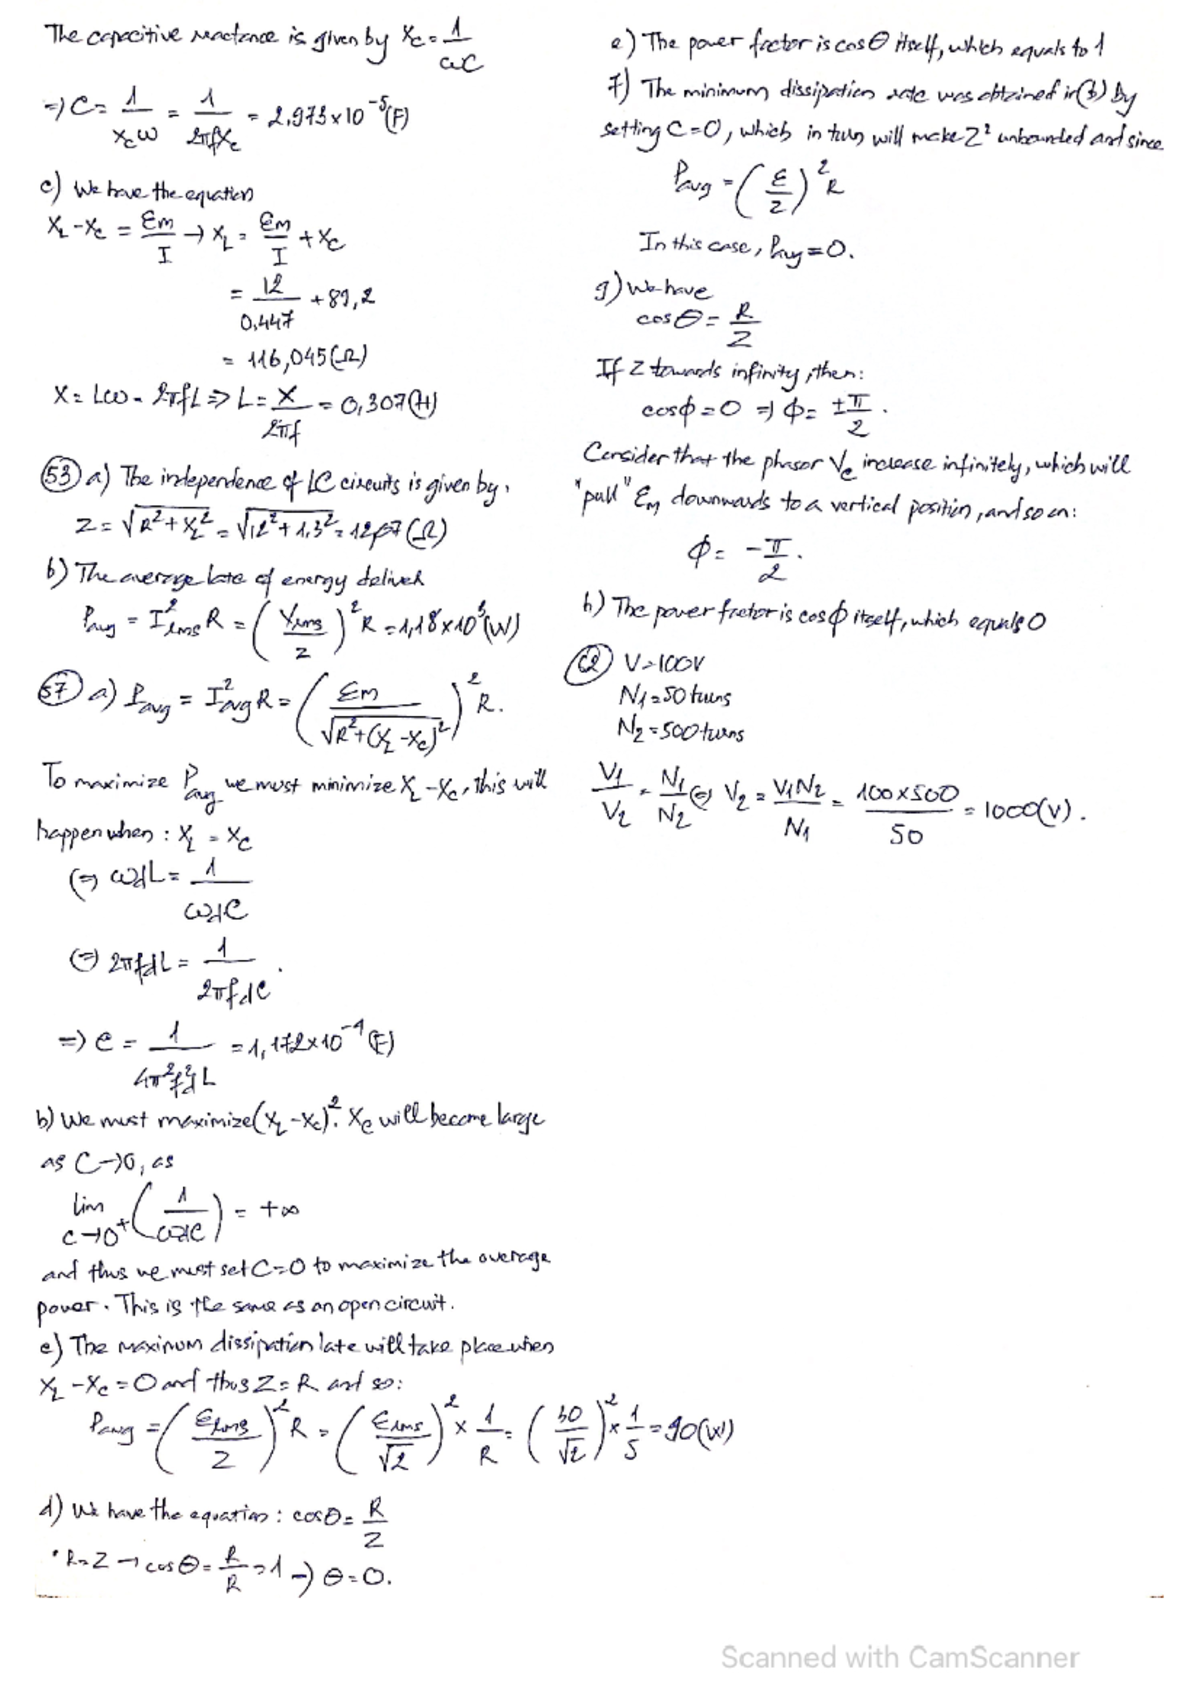 The capacitive reactance is given by Xc = 1/ωC
=> C = 1/XcW = 1/2πfXc = 2,973 x 10^-5 (F)
c) We have the equation
XL - Xc = Em/I → XL = Em/I + Xc
= 12/0,447 + 89,2
= 116,045 (Ω)
X = Lω = 2πfL => L = X/2πf = 0,307 (H)
53 a) The independence of LC circuits is given by,
Z = √R²+XL² = √12²+1,3² = 12,07 (Ω)
b) The average late of energy deliver
Pavg = I²rms R = (Vrms/Z)² R = 1,18 x 10³ (W)
57 a) Pavg = I²avg R = (Em/√R²+(XL-Xc)²)² R.
To maximize Pavg we must minimize XL - Xc, this will
happen when : XL = Xc
(=) ωdL = 1/ωdC
(=) 2πfdL = 1/2πfdC.
=> C = 1/4π²fd²L = 1,172 x 10^-4 (F)
b) We must maximize (XL - Xc)². Xc will become large
as C→0, as
lim C→0+ (1/ωdC) = +∞
and thus we must set C=0 to maximize the average
power. This is the same as an open circuit.
c) The maximum dissipation late will take place when
XL - Xc = 0 and thus Z = R and so:
Pavg = (Erms/Z)² R = (Erms/√2)² x 1/R = (30/√2)² x 1/5 = 90 (W)
d) We have the equation : cosθ = R/Z
* R=Z → cosθ = R/R = 1 → θ = 0.
e) The power factor is cosθ itself, which equals to 1
7) The minimum dissipation rate was obtained in (b) by
setting C=0, which in turn will make Z² unbounded and since
Pavg = (E/Z)² R
In this case, Pavg = 0.
g) We have
cosθ = R/Z
If Z towards infinity, then:
cosϕ = 0 => ϕ = ±π/2.
Consider that the phasor Vc increase infinitely, which will
"pull" Em downwards to a vertical position, and so on:
ϕ = -π/2.
h) The power factor is cosϕ itself, which equals 0
62 V=100V
N1 = 50 turns
N2 = 500 turns
V1/V2 = N1/N2 (=) V2 = V1N2/N1 = 100x500/50 = 1000 (V).
Scanned with CamScanner